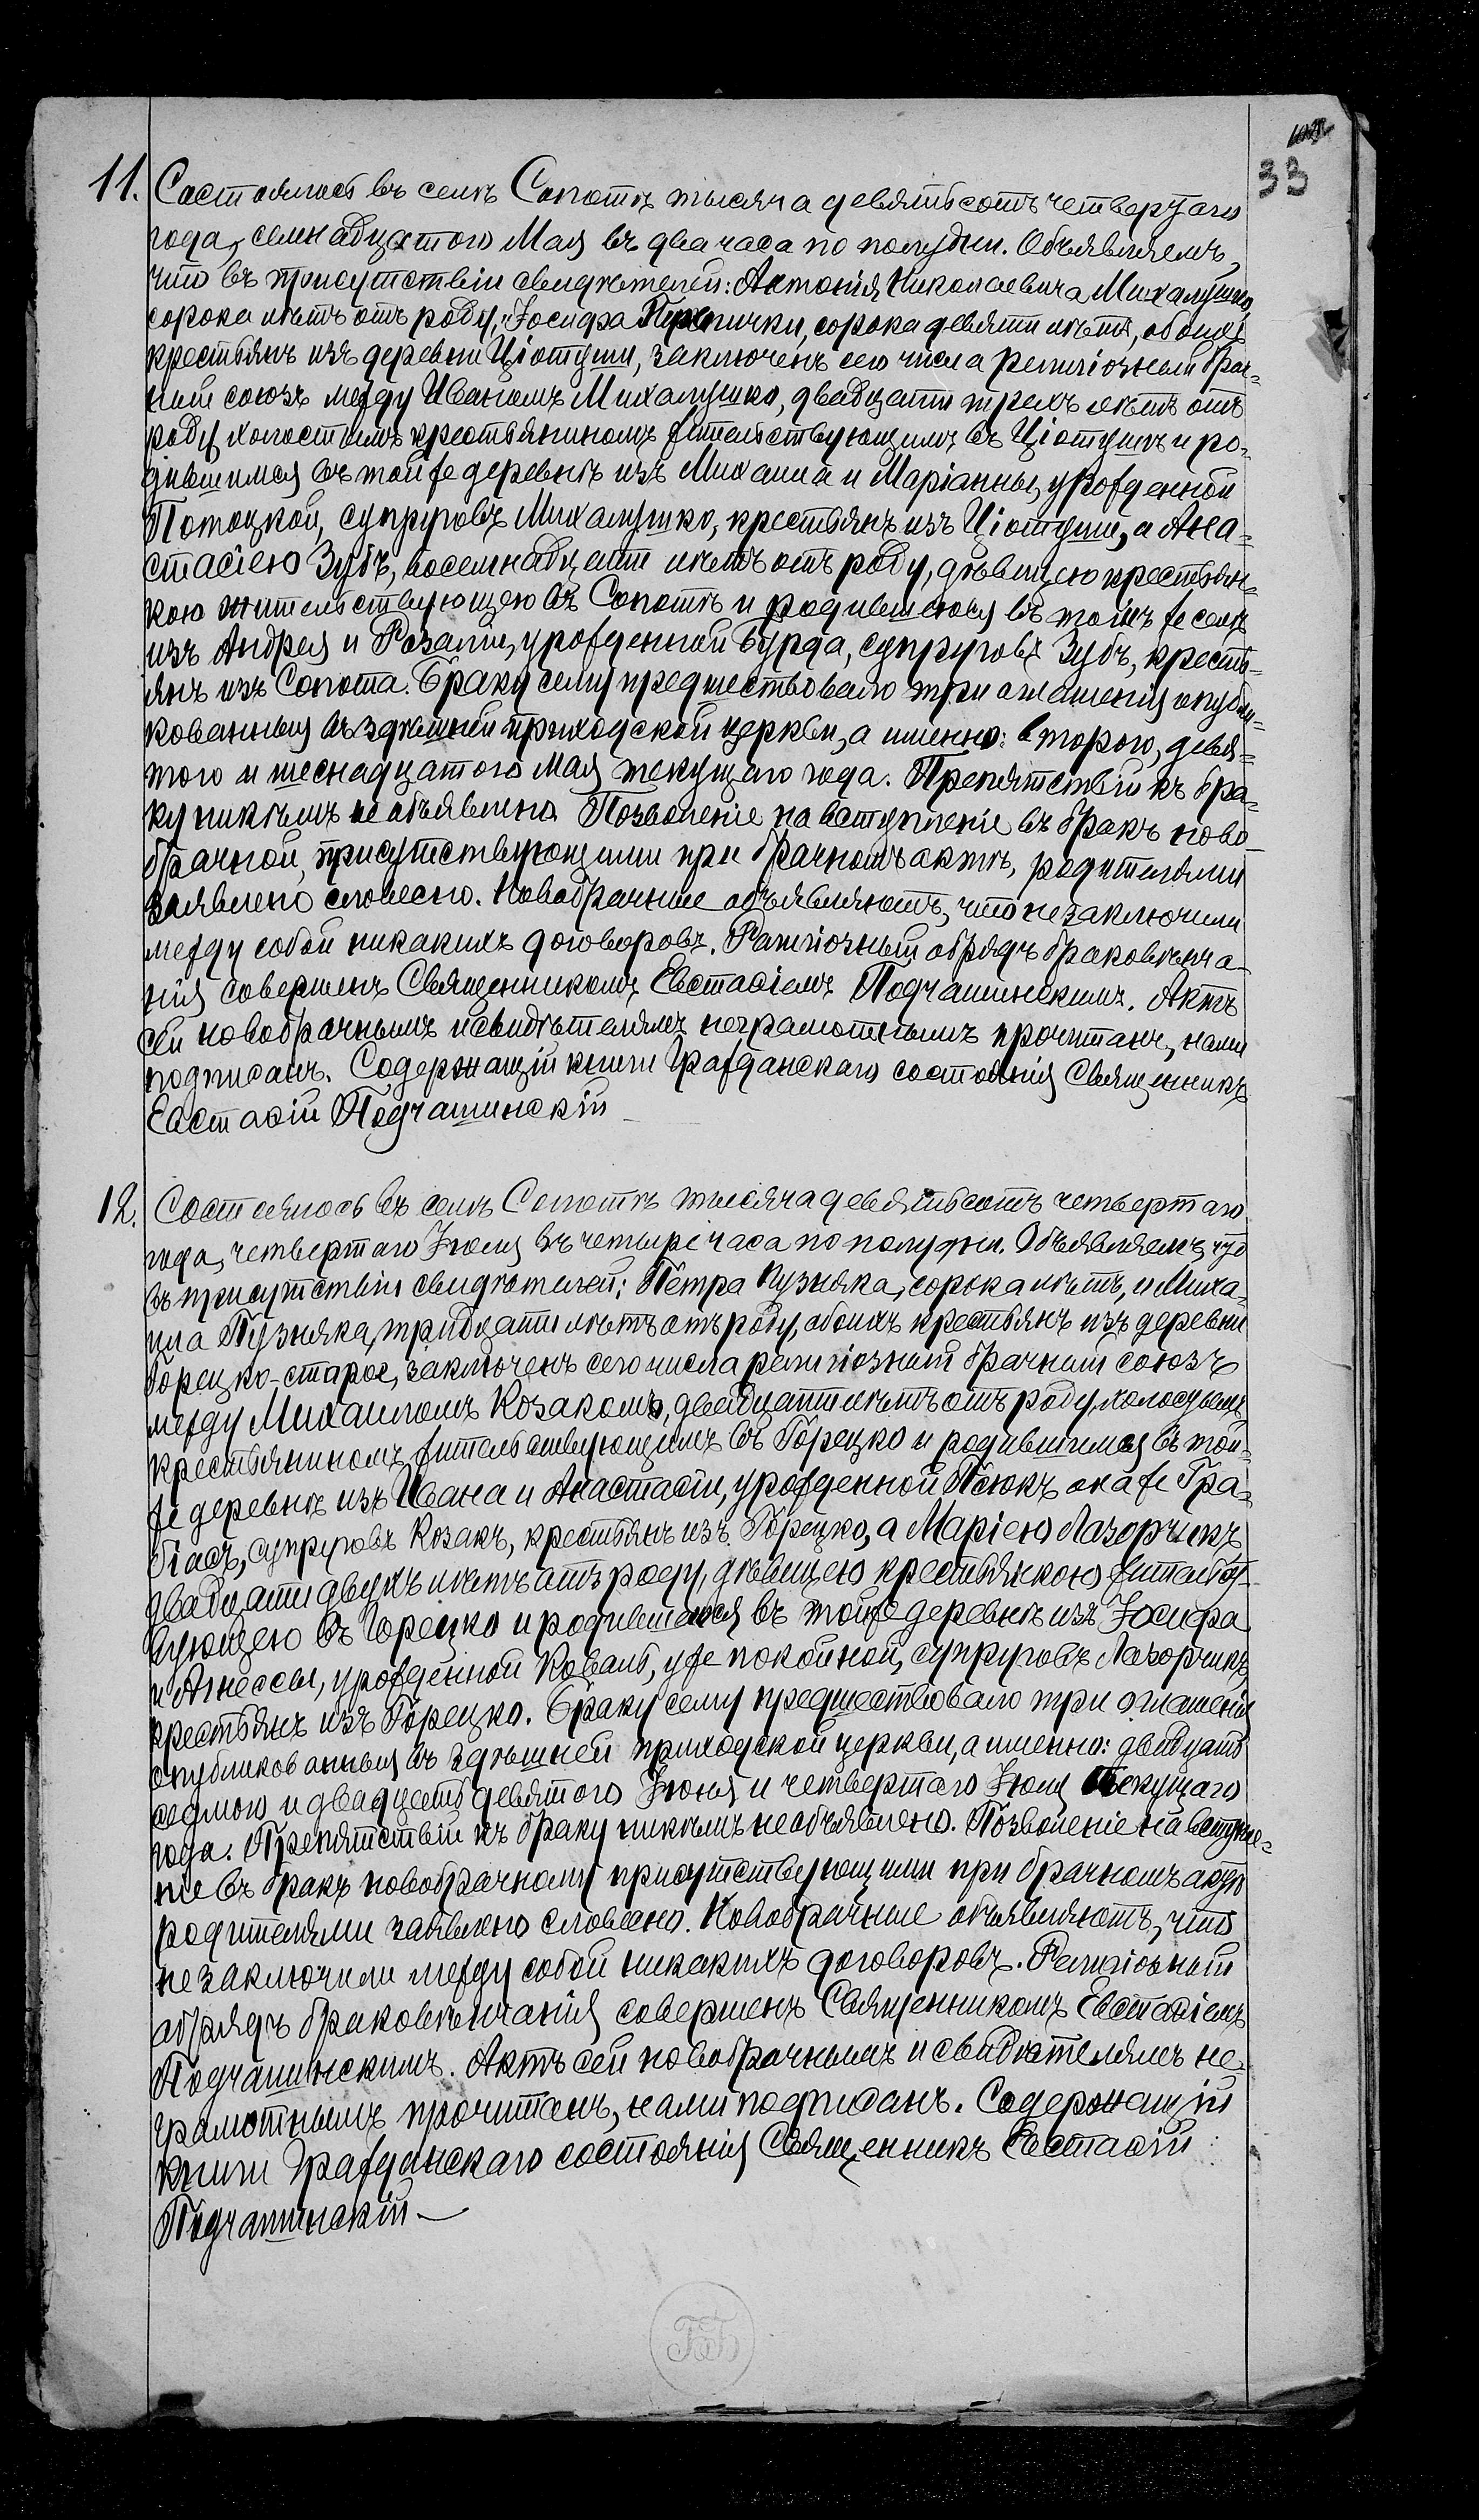 33
11. Состоялось въ селѣ Сопотѣ тысяча девятьсотъ четвертаго
года, семнадцатого Мая въ два часа по полудни. Объявляемъ,
что въ присутствіи свидѣтелей: Антонія Николаевича Михалушко,
сорока лѣтъ отъ роду, Іосифа сорока девяти лѣтъ, обоихъ
крестьянъ изъ деревни Ціотуши, заключенъ сего числа религіозный брач-
ный союзъ между Иваномъ Михалушко, двадцати трехъ лѣтъ отъ
роду холостымъ крестьяниномъ жительствующимъ въ Ціотушѣ и ро-
дившимся въ той же деревнѣ изъ Михаила и Маріанны, урожденной
Потоцкой, супруговъ Михалушко, крестьянъ изъ Ціотуши, а Ана-
стасіею Зубъ, восемнадцати лѣтъ отъ роду, дѣвицею крестьян-
кою жительствующею въ Сопотѣ и родившеюся въ томъ же селѣ
изъ Андрея и Розаліи, урожденной Бурда, супруговъ Зубъ, кресть-
янъ изъ Сопота. Браку сему предшествовало три оглашенія опубли-
кованныя въ здѣшней приходской церкви, а именно: второго, девя-
того и шеснадцатого Мая текущаго года. Препятствій къ бра-
ку никѣмъ не объявлено. Позволеніе на вступленіе въ бракъ ново-
брачной, присутствующими при брачномъ актѣ, родителями
заявлено словесно. Новобрачные объявляютъ, что не заключили
между собой никакихъ договоровъ. Религіозный обрядъ браковѣнча-
нія совершенъ Священникомъ Евстафіемъ Подчашинскимъ. Актъ
сей новобрачнымъ и свидѣтелямъ неграмотнымъ прочитанъ, нами
подписанъ. Содержащій книги Гражданскаго состоянія Священникъ
Евстафій Подчашинскій
12. Состоялось въ селѣ Сопотѣ тысяча девятьсотъ четвертаго
года, четвертаго Іюля въ четыре часа по полудни. Объявляемъ, что
въ присутствіи свидѣтелей: Петра Кузняка, сорока лѣтъ, и Миха-
ила Пузняка, тридцати лѣтъ отъ роду, обоихъ крестьянъ изъ деревни
Горецко-старое, заключенъ сего числа религіозный брачный союзъ
между Михаиломъ Козакомъ, двадцати лѣтъ отъ роду, холостымъ
крестьяниномъ жительствующимъ въ Горецко и родившимся въ той-
же деревнѣ изъ Ивана и Анастасіи, урожденной Псюкъ она же Гра-
біасъ, супруговъ Козакъ, крестьянъ изъ Горецко, а Маріею Лазорчикъ
двадцати двухъ лѣтъ отъ роду, дѣвицею крестьянкою жительст-
вующею въ Горецко и родившеюся въ той же деревнѣ изъ Іосифа
и Агнессы, урожденной Коваль, уже покойной, супруговъ Лазорчикъ,
крестьянъ изъ Горецко. Браку сему предшествовало три оглашенія
опубликованныя въ здѣшней приходской церкви, а именно: двадцать
седмого и двадцать девятого Іюня и четвертаго Іюля текущаго
года. Препятствій къ браку никѣмъ не объявлено. Позволеніе на вступле-
ніе въ бракъ новобрачному присутствующими при брачномъ актѣ
родителями заявлено словесно. Новобрачные объявляютъ, что
не заключили между собой никакихъ договоровъ. Религіозный
обрядъ браковѣнчанія совершенъ Священникомъ Евстафіемъ
Подчашинскимъ. Актъ сей новобрачнымъ и свидѣтелямъ не-
грамотнымъ прочитанъ, нами подписанъ. Содержащій
книги Гражданскаго состоянія Священникъ Евстафій
Подчашинскій